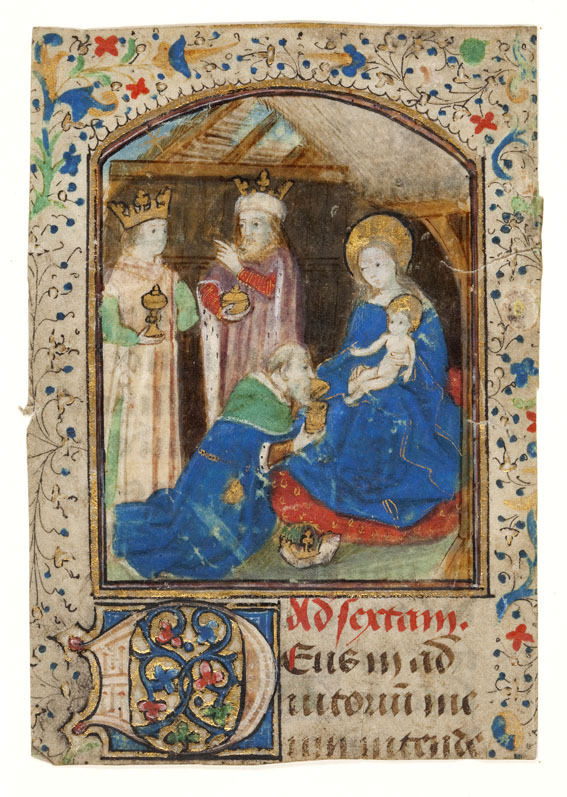 Ad sextam.
Deus in ad
iutoriū me
um intende